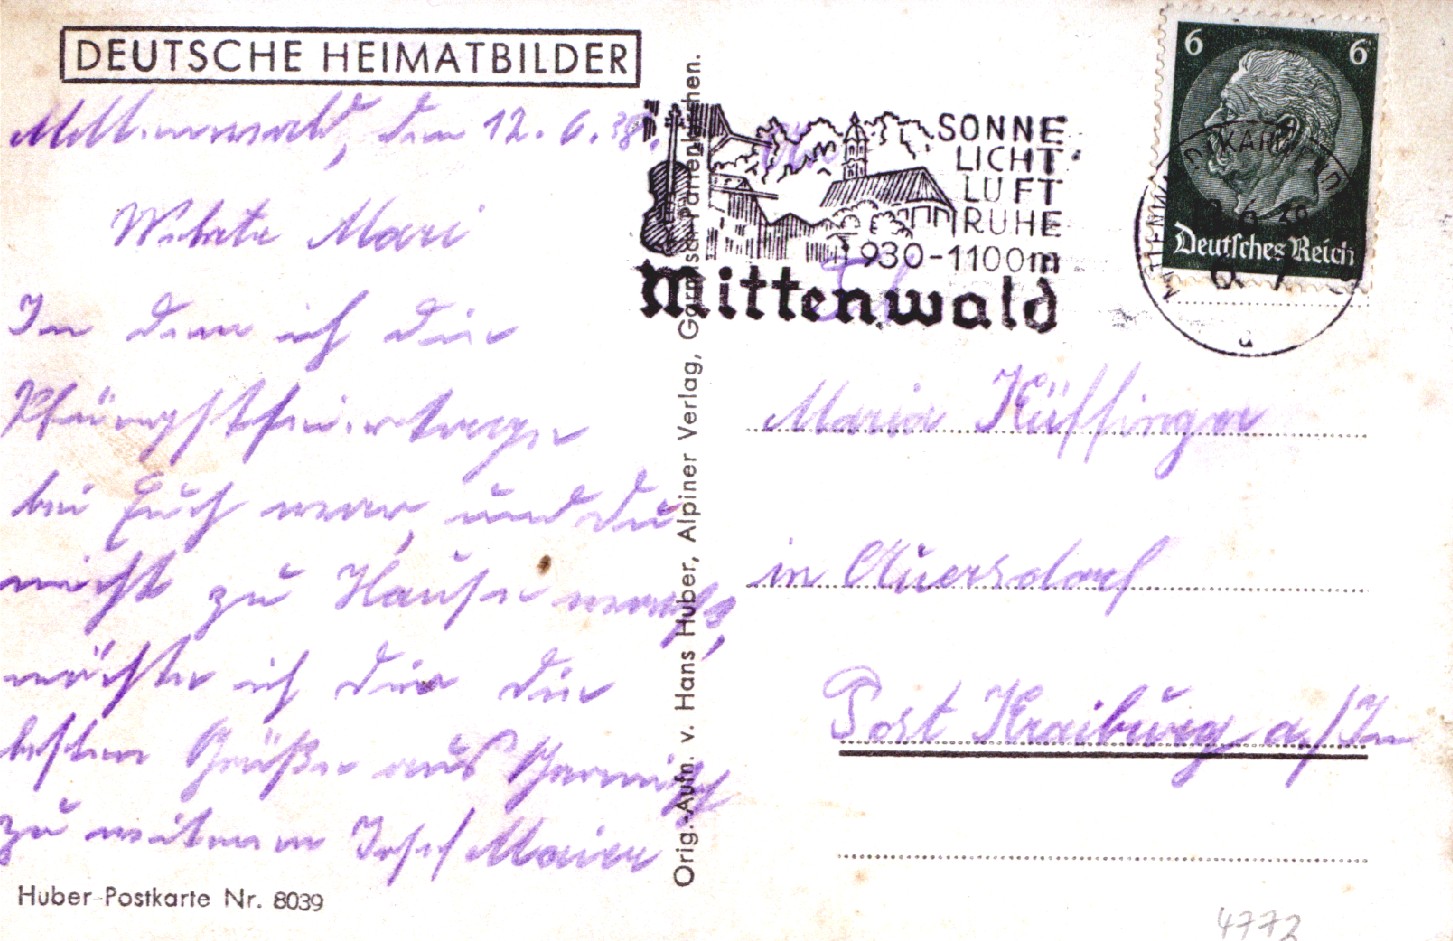 DEUTSCHE HEIMATBILDER
Mittenwald, den 12. 6. 38.
Mari
In dem ich die
Pfingstfeiertage
bei Euch war, und du
nicht zu Hause warst,
möchte ich dir die
besten Grüße aus Garmisch
zu Josef Maier
Huber-Postkarte Nr. 8039
Orig.-Aufn. v. Hans Huber, Alpiner Verlag, Garmisch-Partenkirchen.
SONNE
LICHT
LUFT
RUHE
930-1100m
Mittenwald
6 6
Deutsches Reich
Maria Hüffinger
in Auersdorf
Post Kraiburg a/In
4772